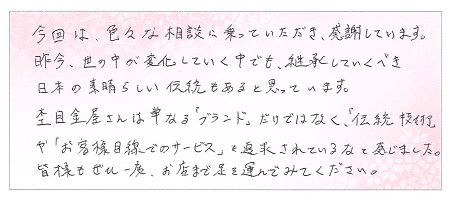 今回は、色々な相談に乗っていただき、感謝しています。
昨今、世の中が変化していく中でも、継承していくべき
日本の素晴らしい伝統もあると思っています。
杢目金屋さんは単なる「ブランド」だけではなく、「伝統技術」
や「お客様目線でのサービス」を追求されているなと感じました。
皆様もぜひ一度、お店まで足を運んでみてください。